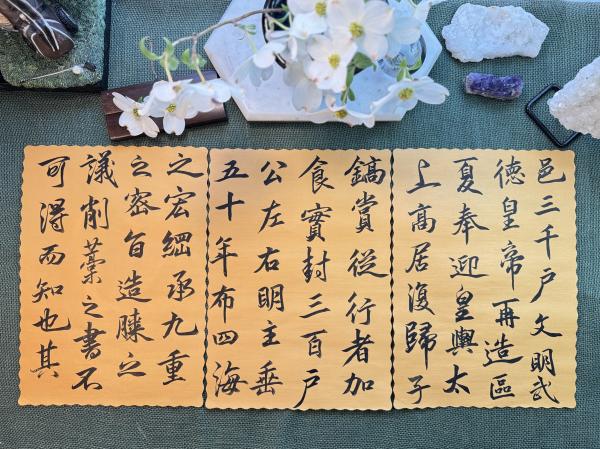 邑三千戶文明武
德皇帝再造區
夏奉迎皇輿太
上高居復歸子
鎬賞從行者加
食實封三百戶
公左右明主垂
五十年布四海
之宏綱承九重
之密旨造膝之
議削藁之書不
可得而知也其